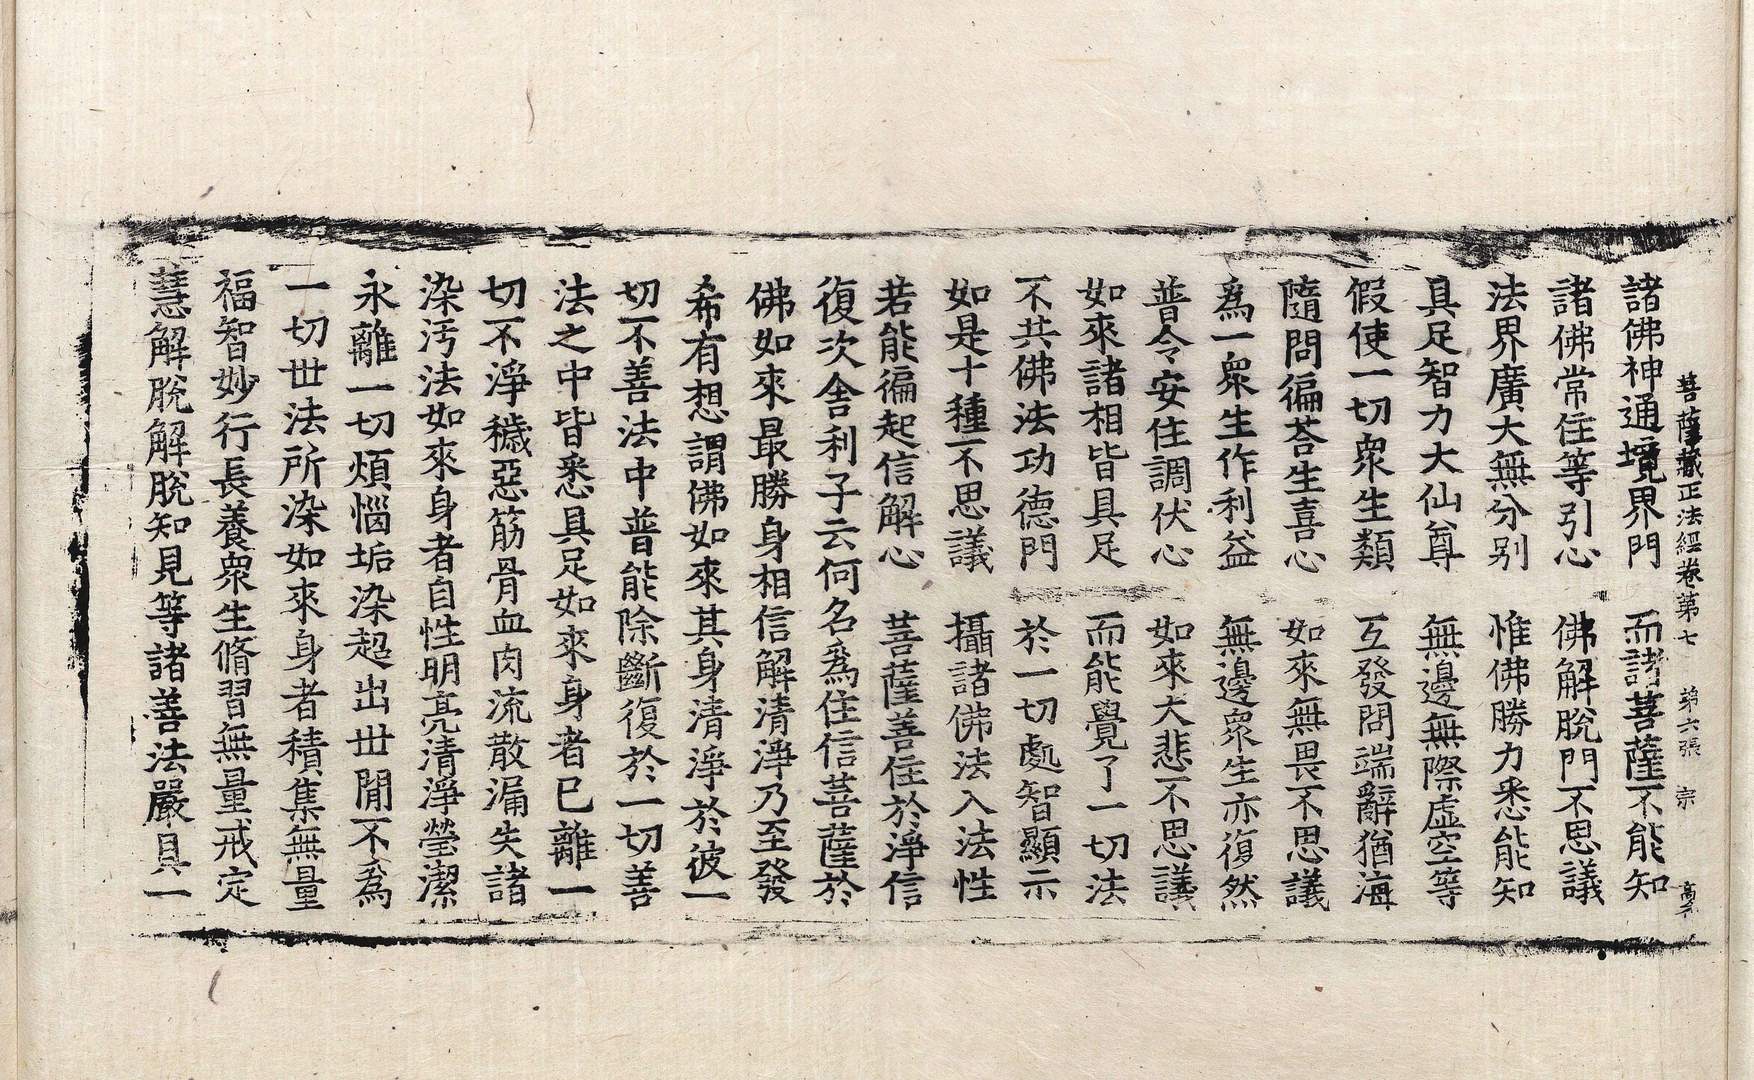 菩薩藏正法經卷第七　第六張　宗
諸佛神通境界門　而諸菩薩不能知
諸佛常住等引心　佛解脫門不思議
法界廣大無分別　惟佛勝力悉能知
具足智力大仙尊　無邊無際虛空等
假使一切衆生類　互發問端辭猶海
隨問徧荅生喜心　如來無畏不思議
爲一衆生作利益　無邊衆生亦復然
普令安住調伏心　如來大悲不思議
如來諸相皆具足　而能覺了一切法
不共佛法功德門　於一切處智顯示
如是十種不思議　攝諸佛法入法性
若能徧起信解心　菩薩善住於淨信
復次舍利子云何名爲住信菩薩於
佛如來最勝身相信解清淨乃至發
希有想謂佛如來其身清淨於彼一
切不善法中普能除斷復於一切善
法之中皆悉具足如來身者已離一
切不淨穢惡筋骨血肉流散漏失諸
染汚法如來身者自性明亮清淨瑩潔
永離一切煩惱垢染超出世閒不爲
一切世法所染如來身者積集無量
福智妙行長養衆生脩習無量戒定
慧解脫解脫知見等諸善法嚴具一